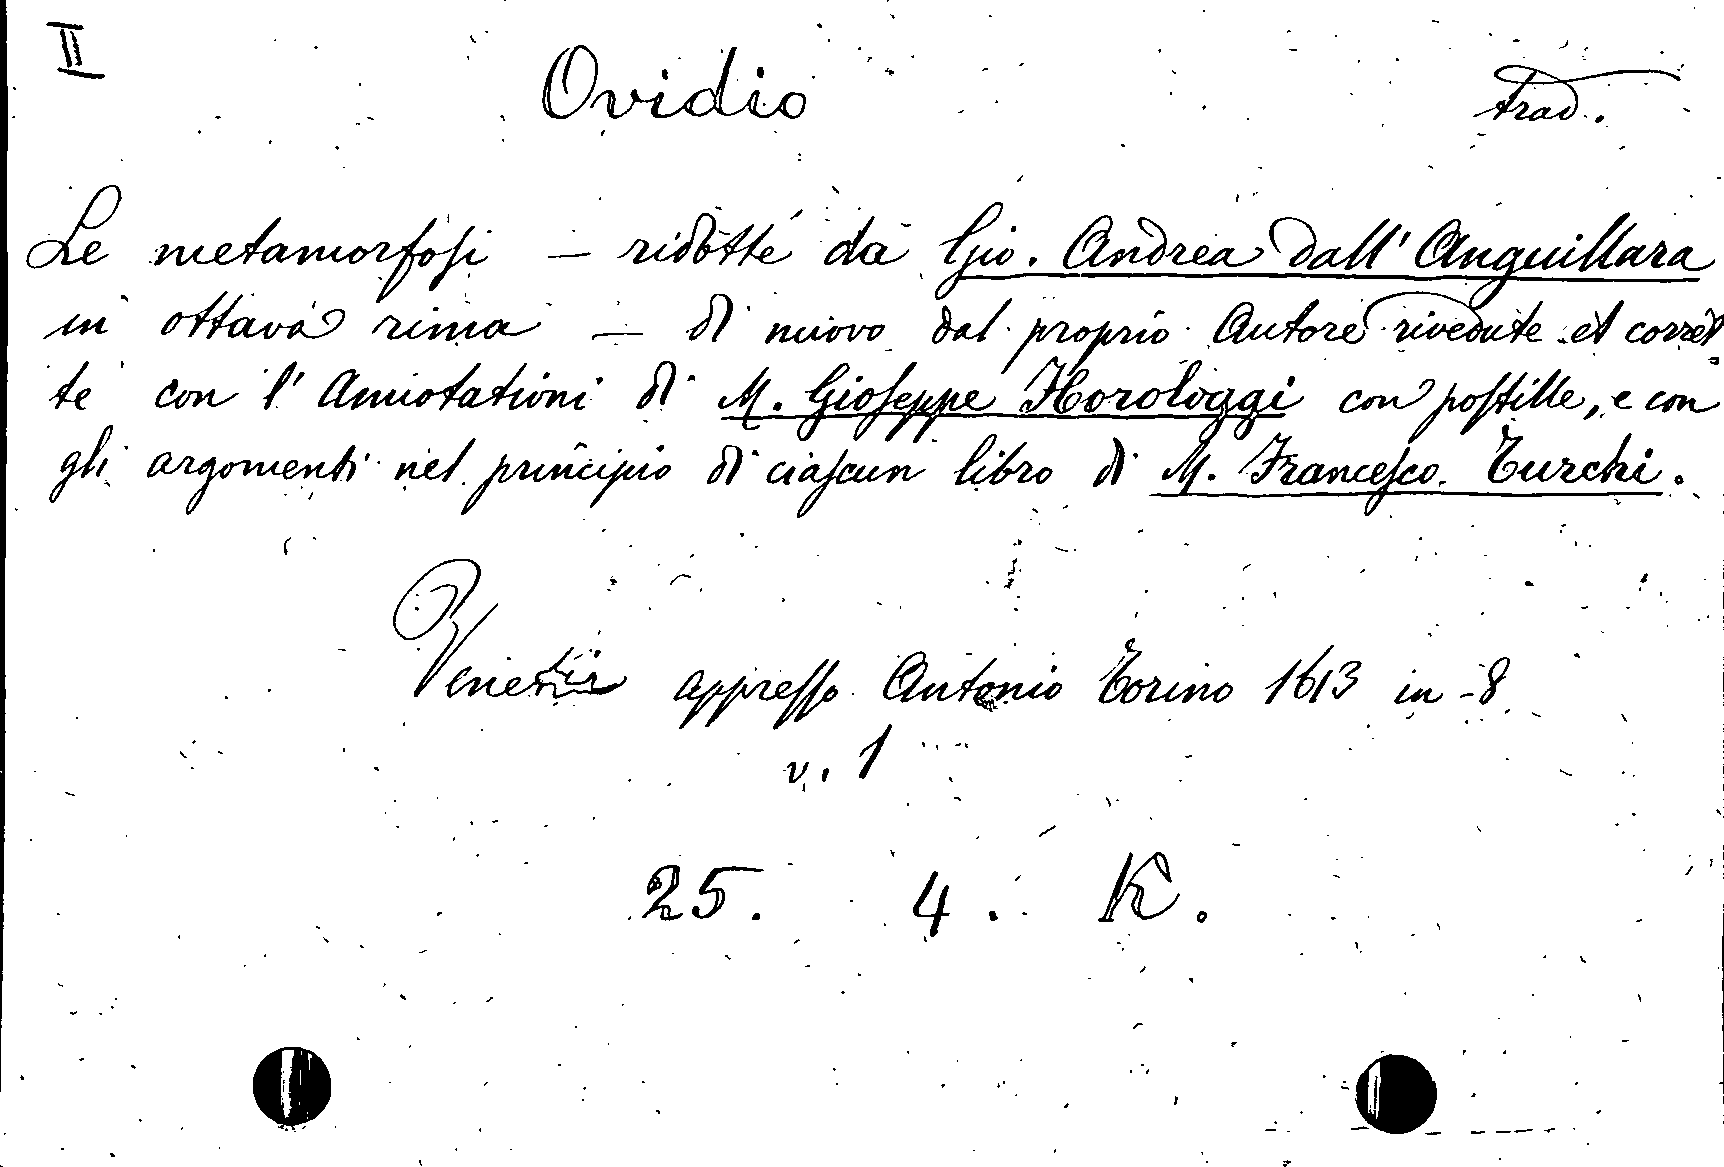 II
Ovidio
trad.
Le metamorfosi — ridotte da Gio. Andrea dall' Anguillara
in ottava rima — di nuovo dal proprio Autore rivedute et corret
te con l' Annotationi di M. Gioseppe Horologgi con postille, e con
gli argomenti nel principio di ciascun libro di M. Francesco Turchi.
appresso Antonio Torino 1613 in -8
v. 1
25. 4. K.